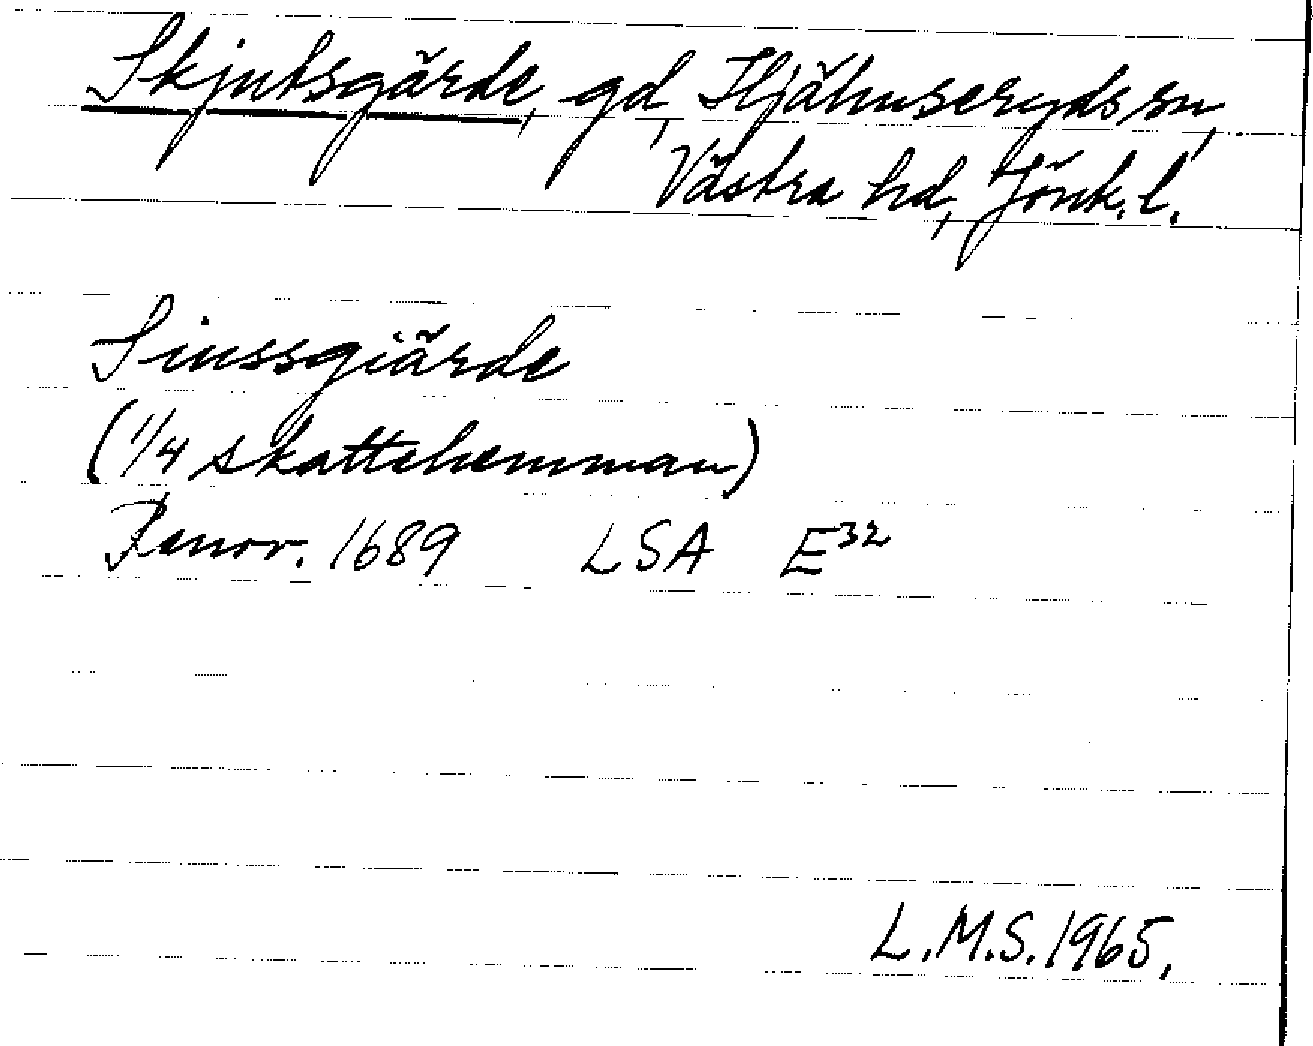 Skjutsgärde, gd, Hjälmseryds sn,
Västra hd, Jönk. l.
Siussgiärde
(1/4 skattehemman)
Renov. 1689 LSA E32
L.M.S. 1965.